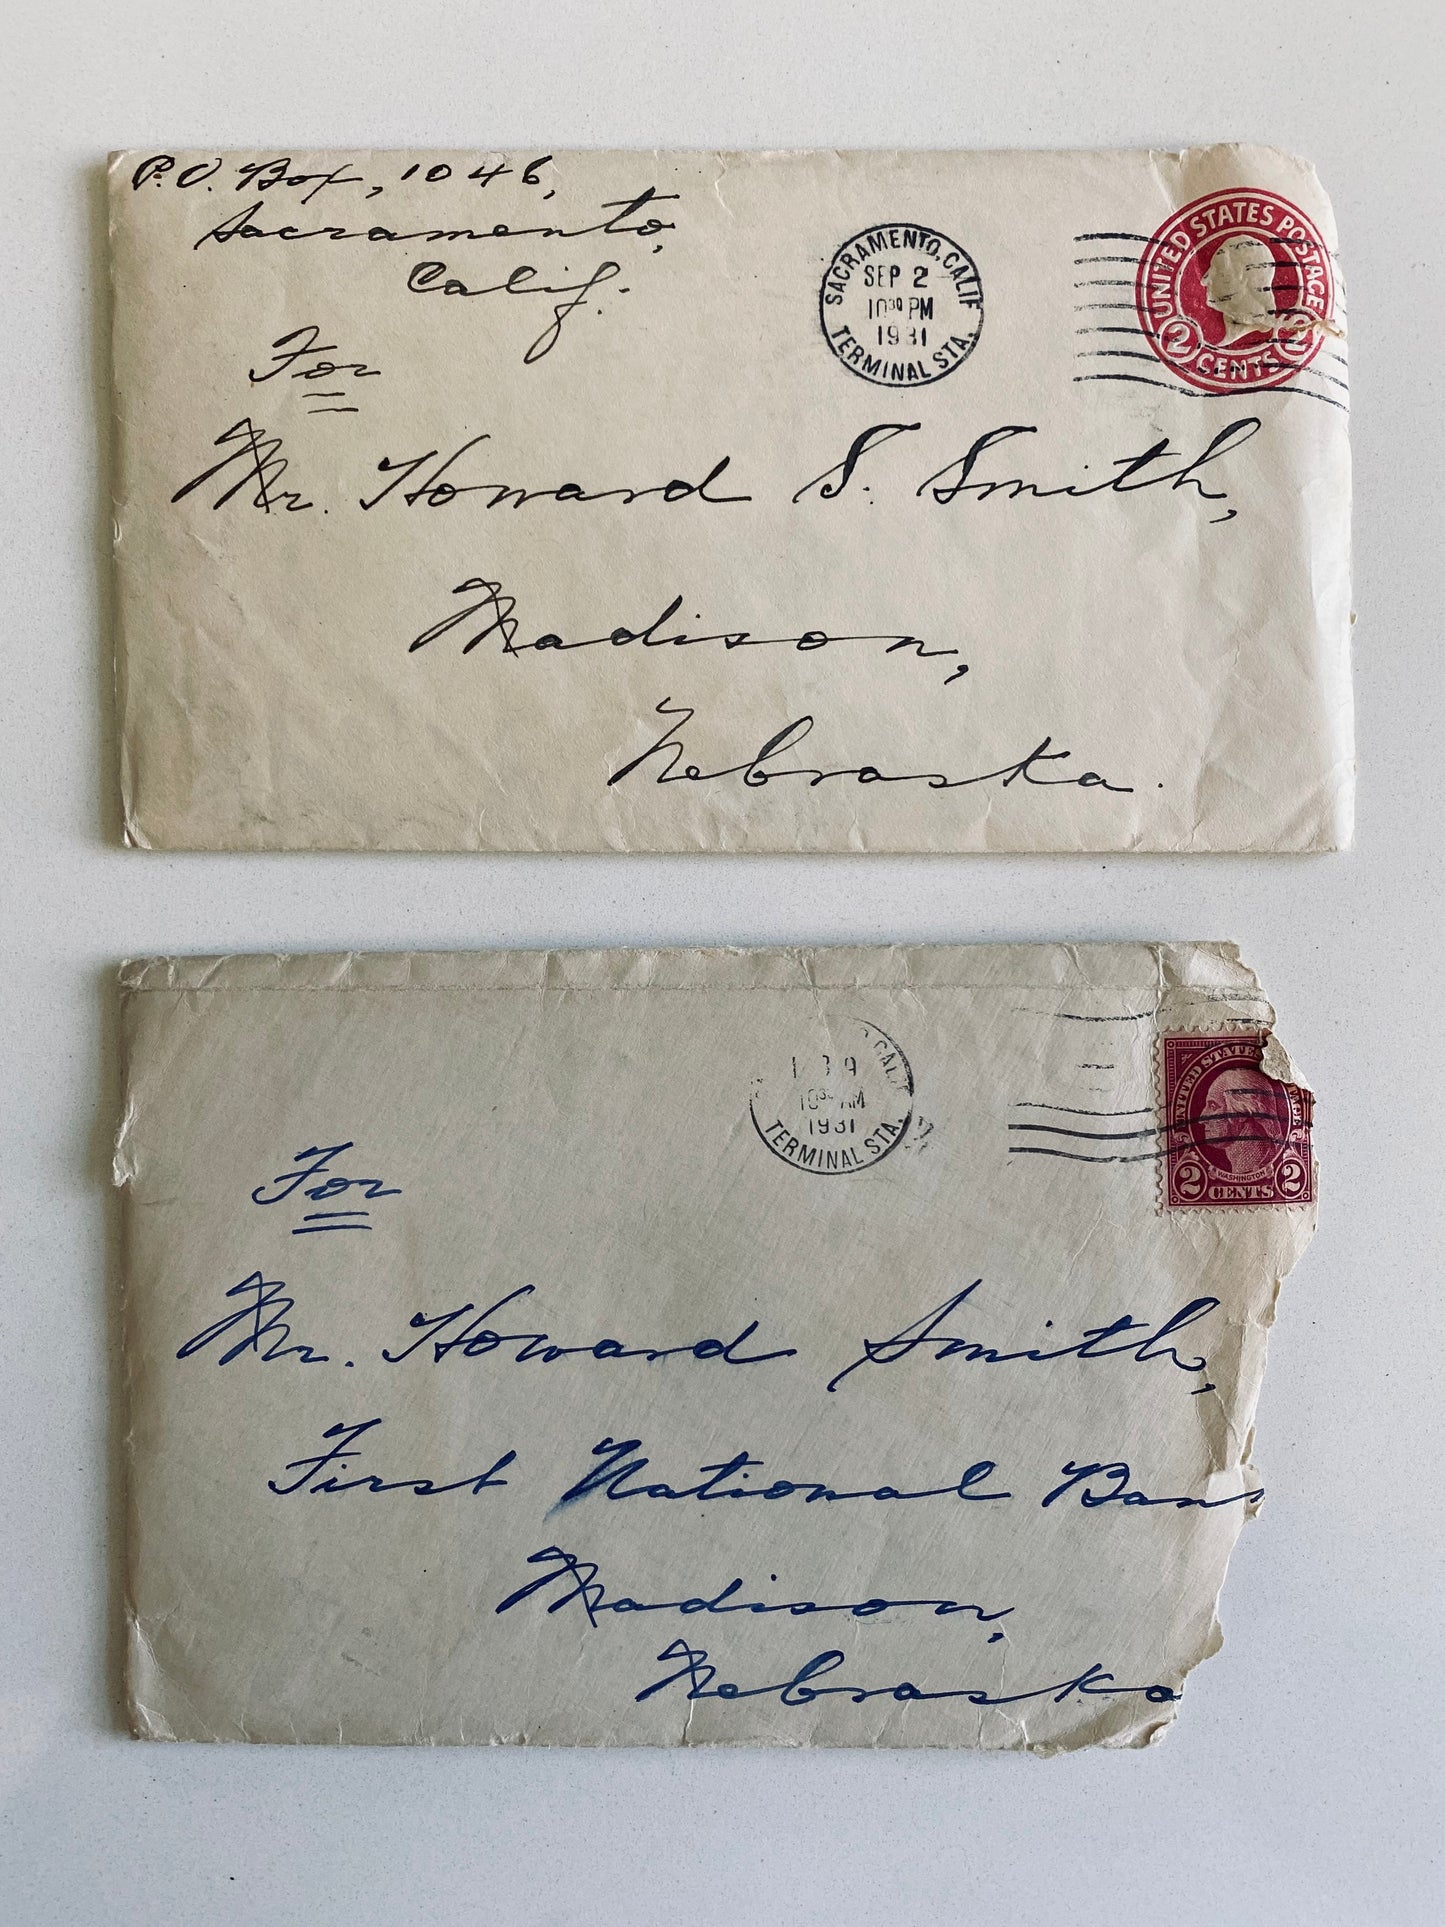 P.O. Box, 1046,
Sacramento,
Calif.
SACRAMENTO, CALIF
SEP 2
10 30 PM
1931
TERMINAL STA.
UNITED STATES POSTAGE
2 CENTS 2
For
Mr. Howard S. Smith,
Madison,
Nebraska.
CALIF
9
10 30 AM
1931
TERMINAL STA.
UNITED STATES
WASHINGTON
2 CENTS 2
For
Mr. Howard Smith,
First National Bank
Madison,
Nebraska